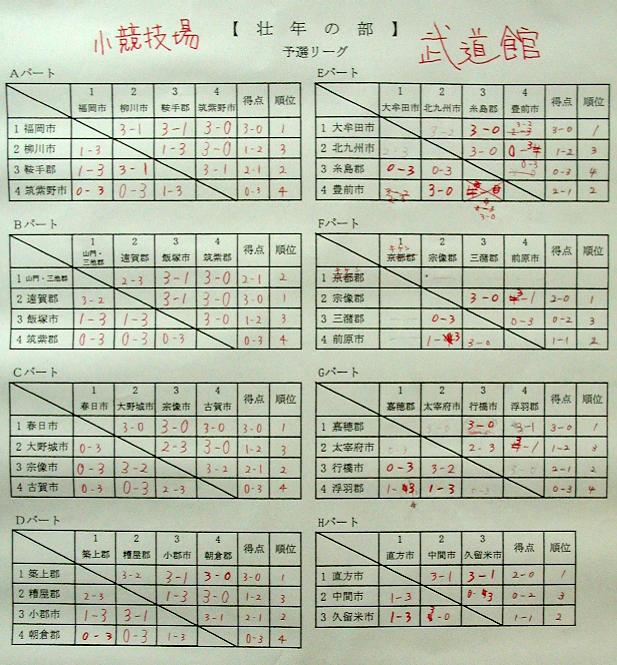 【 壮 年 の 部 】
小競技場
武道館
予選リーグ
Aパート
1 2 3 4 得点 順位
福岡市 柳川市 鞍手郡 筑紫野市
1 福岡市 3-1 3-1 3-0 3-0 1
2 柳川市 1-3 1-3 3-0 1-2 3
3 鞍手郡 1-3 3-1 3-1 2-1 2
4 筑紫野市 0-3 0-3 1-3 0-3 4
Bパート
1 2 3 4 得点 順位
山門・三池郡 遠賀郡 飯塚市 筑紫郡
1 山門・三池郡 2-3 3-1 3-0 2-1 2
2 遠賀郡 3-2 3-1 3-0 3-0 1
3 飯塚市 1-3 1-3 3-0 1-2 3
4 筑紫郡 0-3 0-3 0-3 0-3 4
Cパート
1 2 3 4 得点 順位
春日市 大野城市 宗像市 古賀市
1 春日市 3-0 3-0 3-0 3-0 1
2 大野城市 0-3 2-3 3-0 1-2 3
3 宗像市 0-3 3-2 3-2 2-1 2
4 古賀市 0-3 0-3 2-3 0-3 4
Dパート
1 2 3 4 得点 順位
築上郡 糟屋郡 小郡市 朝倉郡
1 築上郡 3-2 3-1 3-0 3-0 1
2 糟屋郡 2-3 1-3 3-0 1-2 3
3 小郡市 1-3 3-1 3-1 2-1 2
4 朝倉郡 0-3 0-3 1-3 0-3 4
Eパート
1 2 3 4 得点 順位
大牟田市 北九州市 糸島郡 豊前市
1 大牟田市 3-2 3-0 3-2 3-0 1
2 北九州市 2-3 3-0 0-3 1-2 3
3 糸島郡 0-3 0-3 0-3 0-3 4
4 豊前市 3-0 3-0 2-1 2
Fパート
1 2 3 4 得点 順位
キケン
京都郡 宗像郡 三潴郡 前原市
キケン
1 京都郡
2 宗像郡 3-0 3-1 2-0 1
3 三潴郡 0-3 0-3 0-2 3
4 前原市 1-3 3-0 1-1 2
Gパート
1 2 3 4 得点 順位
嘉穂郡 太宰府市 行橋市 浮羽郡
1 嘉穂郡 3-0 3-0 3-1 3-0 1
2 太宰府市 0-3 2-3 3-1 1-2 3
3 行橋市 0-3 3-2 3-0 2-1 2
4 浮羽郡 1-3 1-3 0-3 0-3 4
Hパート
1 2 3 得点 順位
直方市 中間市 久留米市
1 直方市 3-1 3-1 2-0 1
2 中間市 1-3 0-3 0-2 3
3 久留米市 1-3 3-0 1-1 2